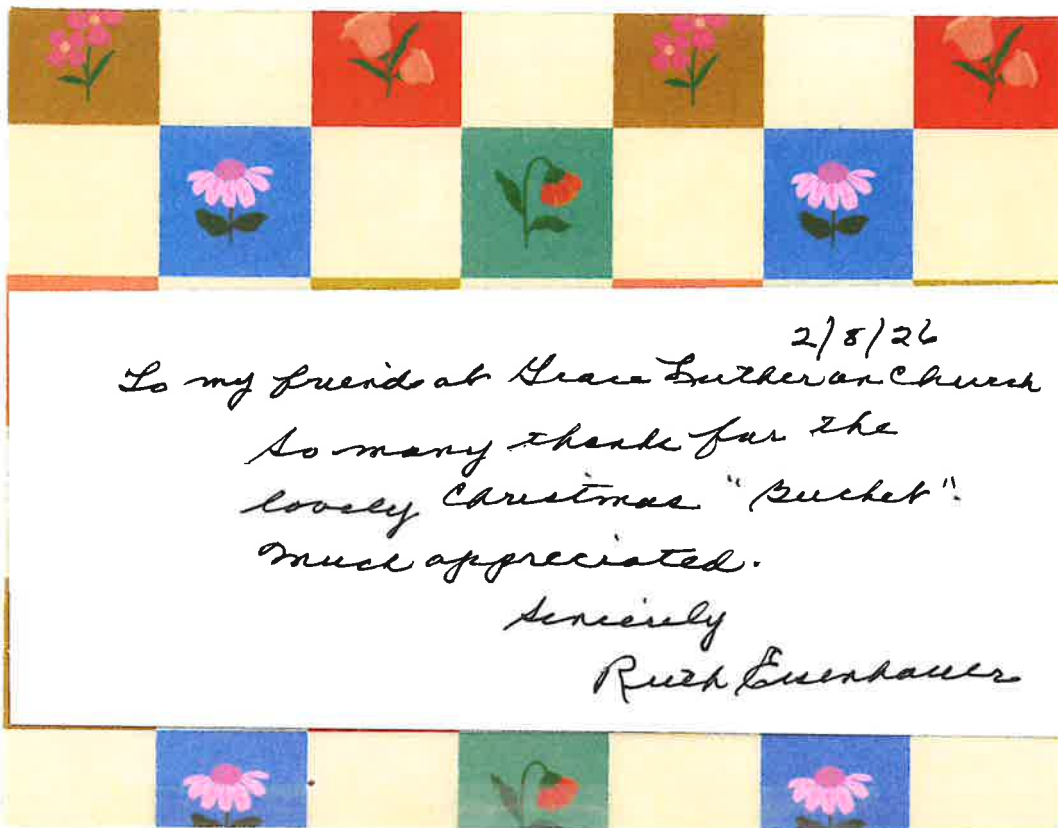 2/8/26
To my friends at Grace Lutheran Church
So many thanks for the
lovely Christmas "Bucket".
Much appreciated.
Sincerely
Ruth Eisenhauer